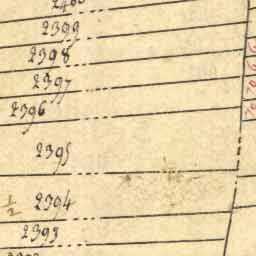 2399
2398
2397
2396
2395
½ 2394
2393